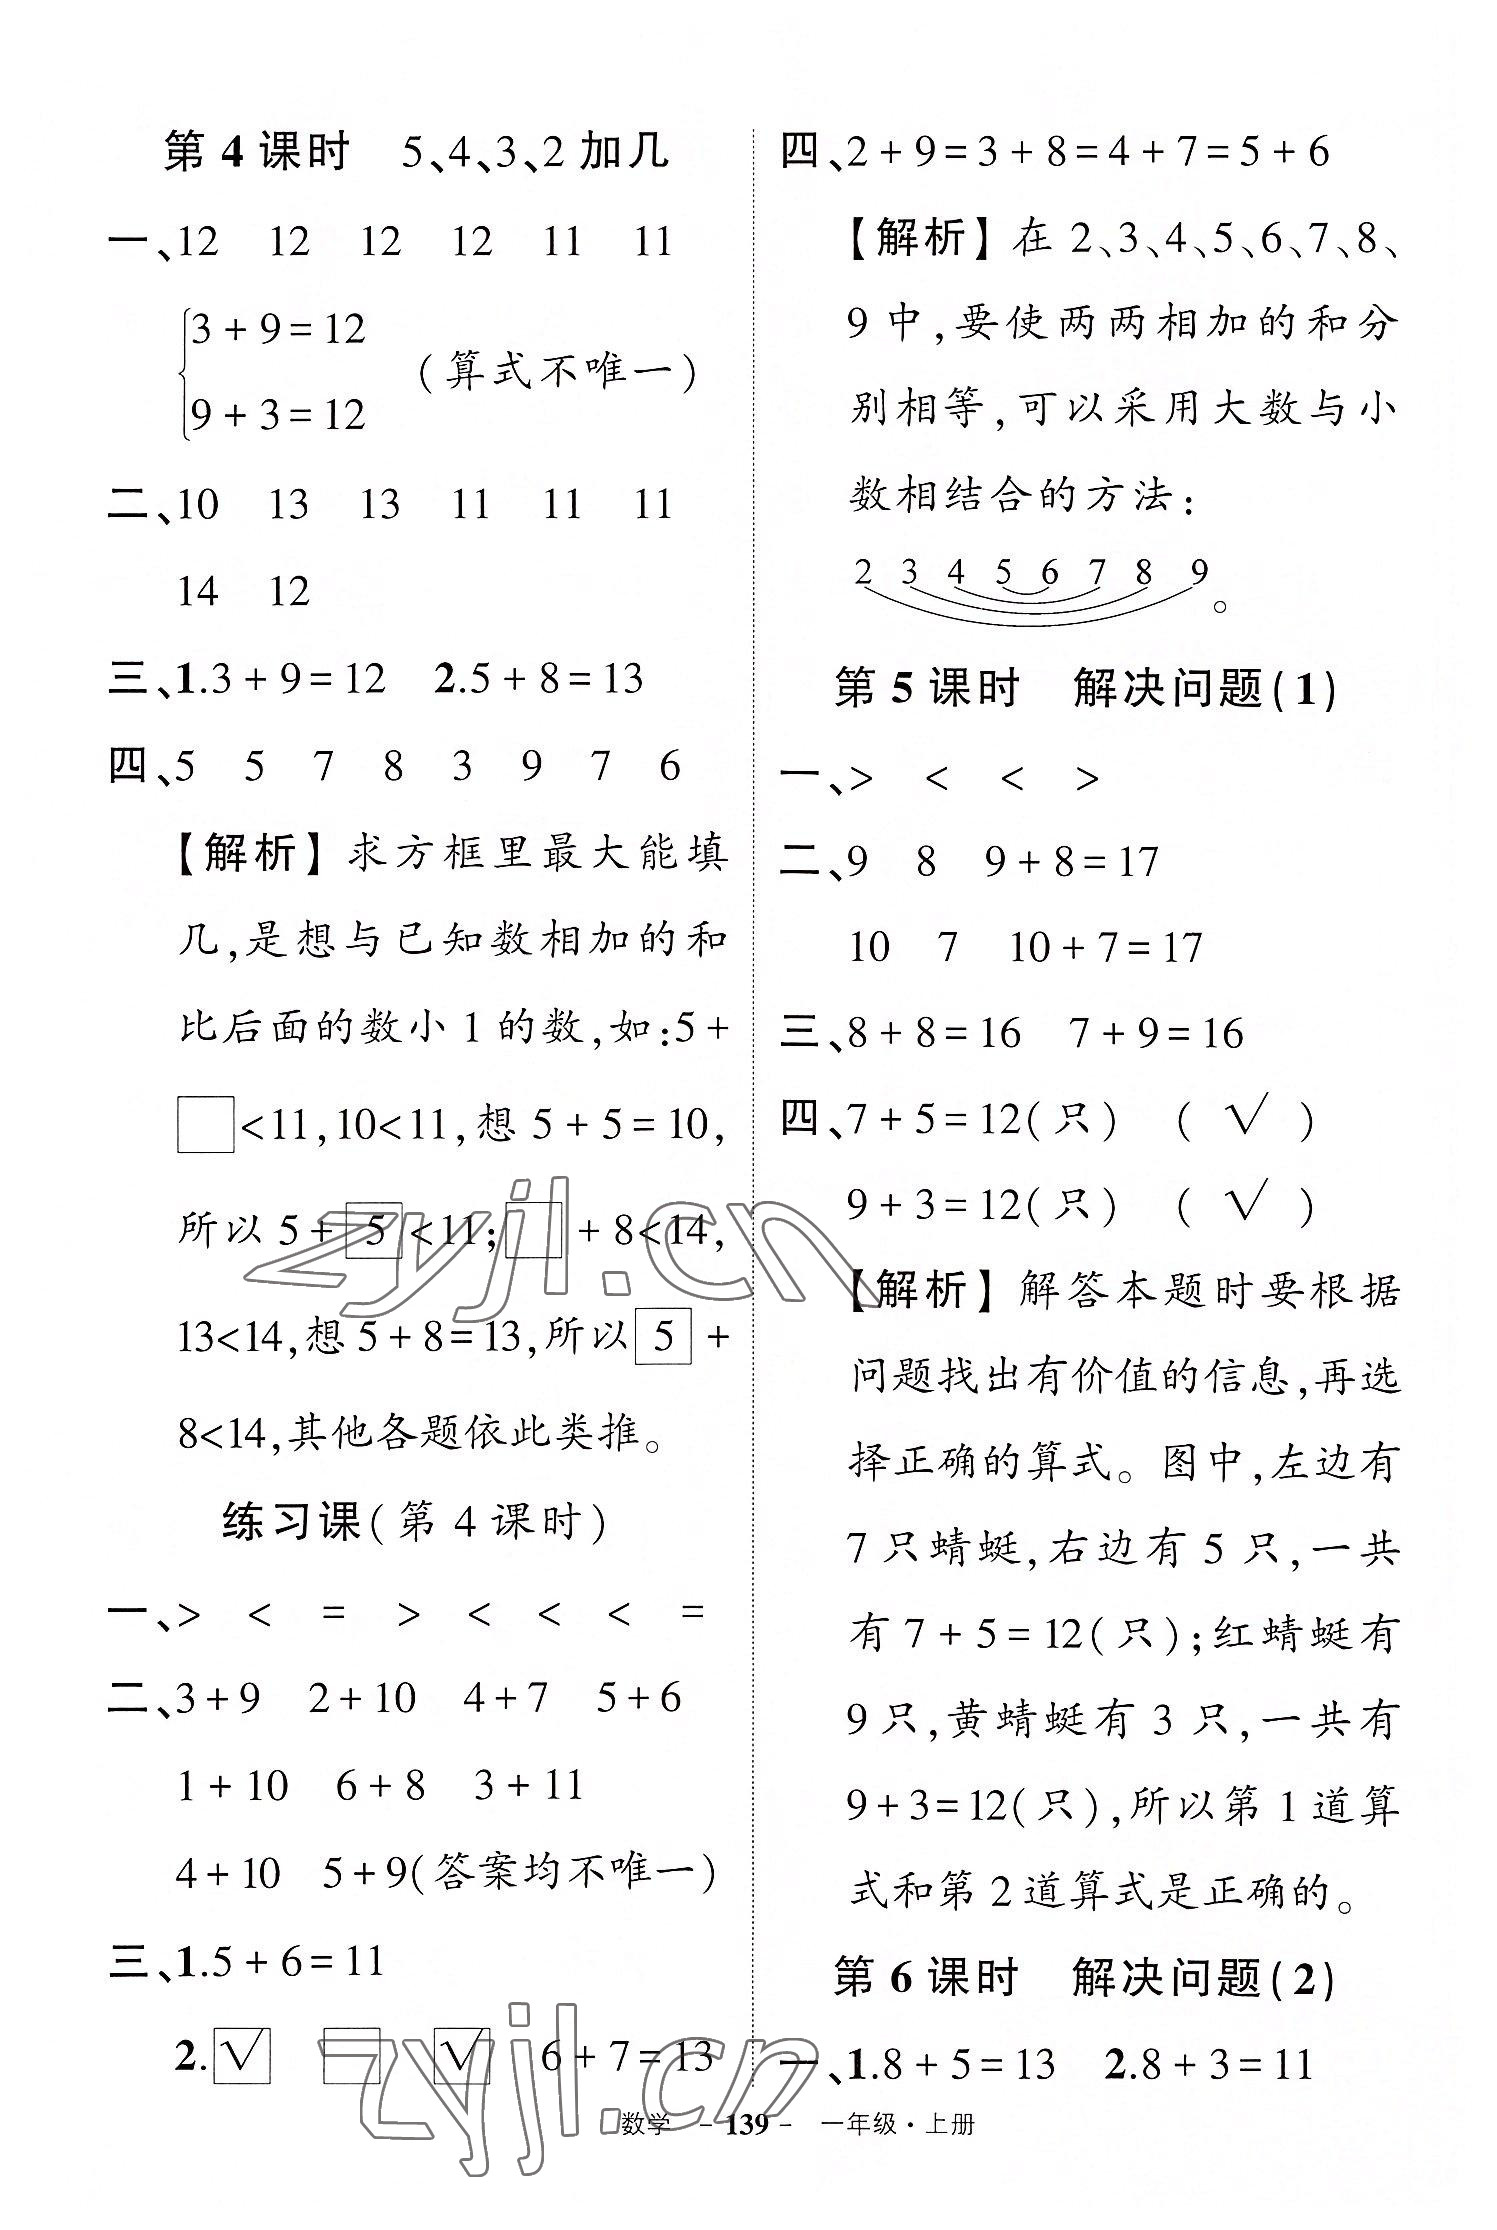 第4课时　5、4、3、2加几
一、12　12　12　12　11　11
3+9=12
9+3=12　(算式不唯一)
二、10　13　13　11　11　11
14　12
三、1.3+9=12　2.5+8=13
四、5　5　7　8　3　9　7　6
【解析】求方框里最大能填
几,是想与已知数相加的和
比后面的数小1的数,如:5+
□<11,10<11,想5+5=10,
所以5+5<11;□+8<14,
13<14,想5+8=13,所以5+
8<14,其他各题依此类推。
练习课(第4课时)
一、>　<　=　>　<　<　<　=
二、3+9　2+10　4+7　5+6
1+10　6+8　3+11
4+10　5+9(答案均不唯一)
三、1.5+6=11
2.☑　□　☑　6+7=13
四、2+9=3+8=4+7=5+6
【解析】在2、3、4、5、6、7、8、
9中,要使两两相加的和分
别相等,可以采用大数与小
数相结合的方法:
2　3　4　5　6　7　8　9。
第5课时　解决问题(1)
一、>　<　<　>
二、9　8　9+8=17
10　7　10+7=17
三、8+8=16　7+9=16
四、7+5=12(只)　(√)
9+3=12(只)　(√)
【解析】解答本题时要根据
问题找出有价值的信息,再选
择正确的算式。图中,左边有
7只蜻蜓,右边有5只,一共
有7+5=12(只);红蜻蜓有
9只,黄蜻蜓有3只,一共有
9+3=12(只),所以第1道算
式和第2道算式是正确的。
第6课时　解决问题(2)
一、1.8+5=13　2.8+3=11
数学　-139-　一年级·上册
zyjl.cn
zyjl.cn